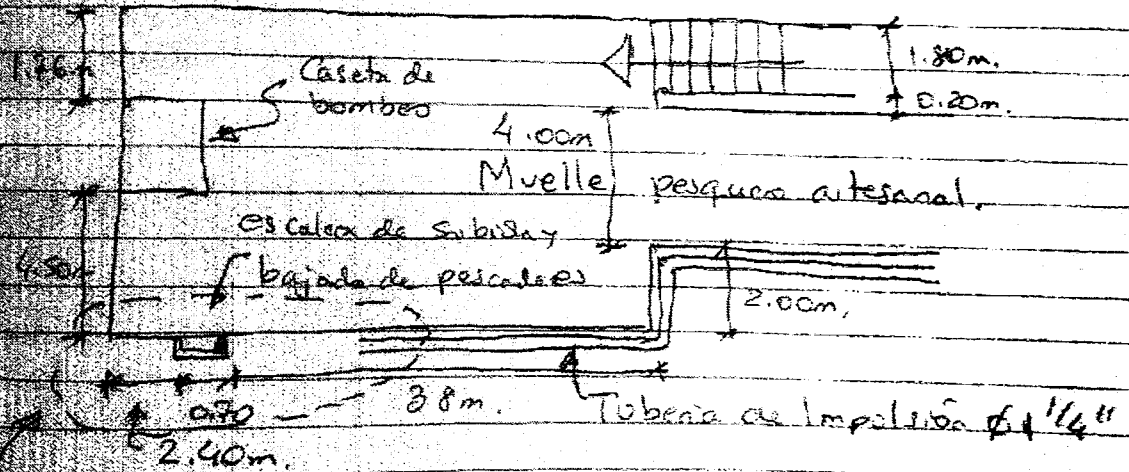 1.80m.
0.20m.
Caseta de
bombeo
4.00m
Muelle pesquero artesanal.
escalera de subida y
bajada de pescadores
4.50m
2.00m.
0.70
38m.
Tuberia de Impulsión ø 1 1/4"
2.40m.